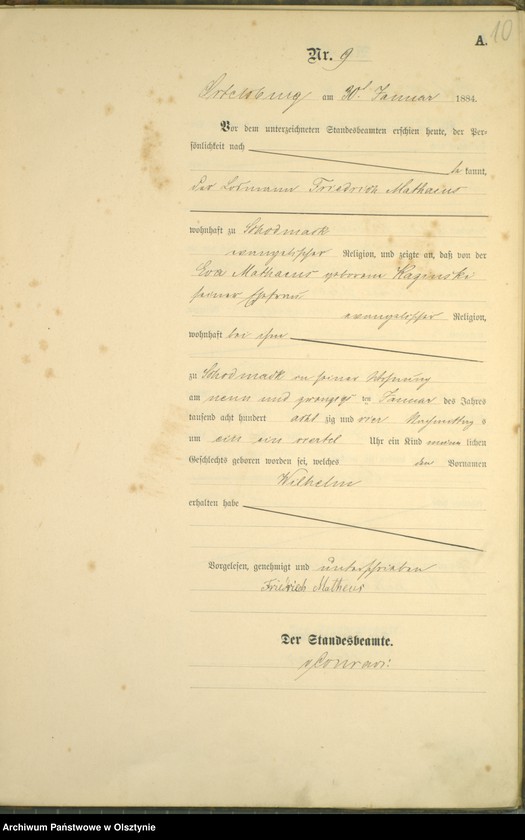 10
A.
Nr. 9
Ortelsburg am 30t Januar 1884.
Vor dem unterzeichneten Standesbeamten erschien heute, der Per-
sönlichkeit nach
be kannt,
der Losmann Friedrich Mathaeus
wohnhaft zu Schodmack
evangelischer Religion, und zeigte an, daß von der
Eva Mathaeus geborene
seiner Ehefrau
evangelischer Religion,
wohnhaft bei ihm
zu Schodmack in seiner Wohnung
am neun und zwanzigs ten Januar des Jahres
tausend acht hundert acht zig und vier Nachmittags
um ein ein viertel Uhr ein Kind männ lichen
Geschlechts geboren worden sei, welches den Vornamen
Wilhelm
erhalten habe
Vorgelesen, genehmigt und unterschrieben
Friedrich Matheus
Der Standesbeamte.
vConradi
Archiwum Państwowe w Olsztynie